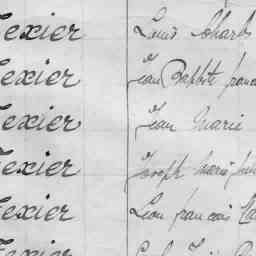 Texier Louis Charles
Texier Jean Baptiste franc
Texier Jean Marie
Texier Joseph marie
Texier Leon francois
Texier